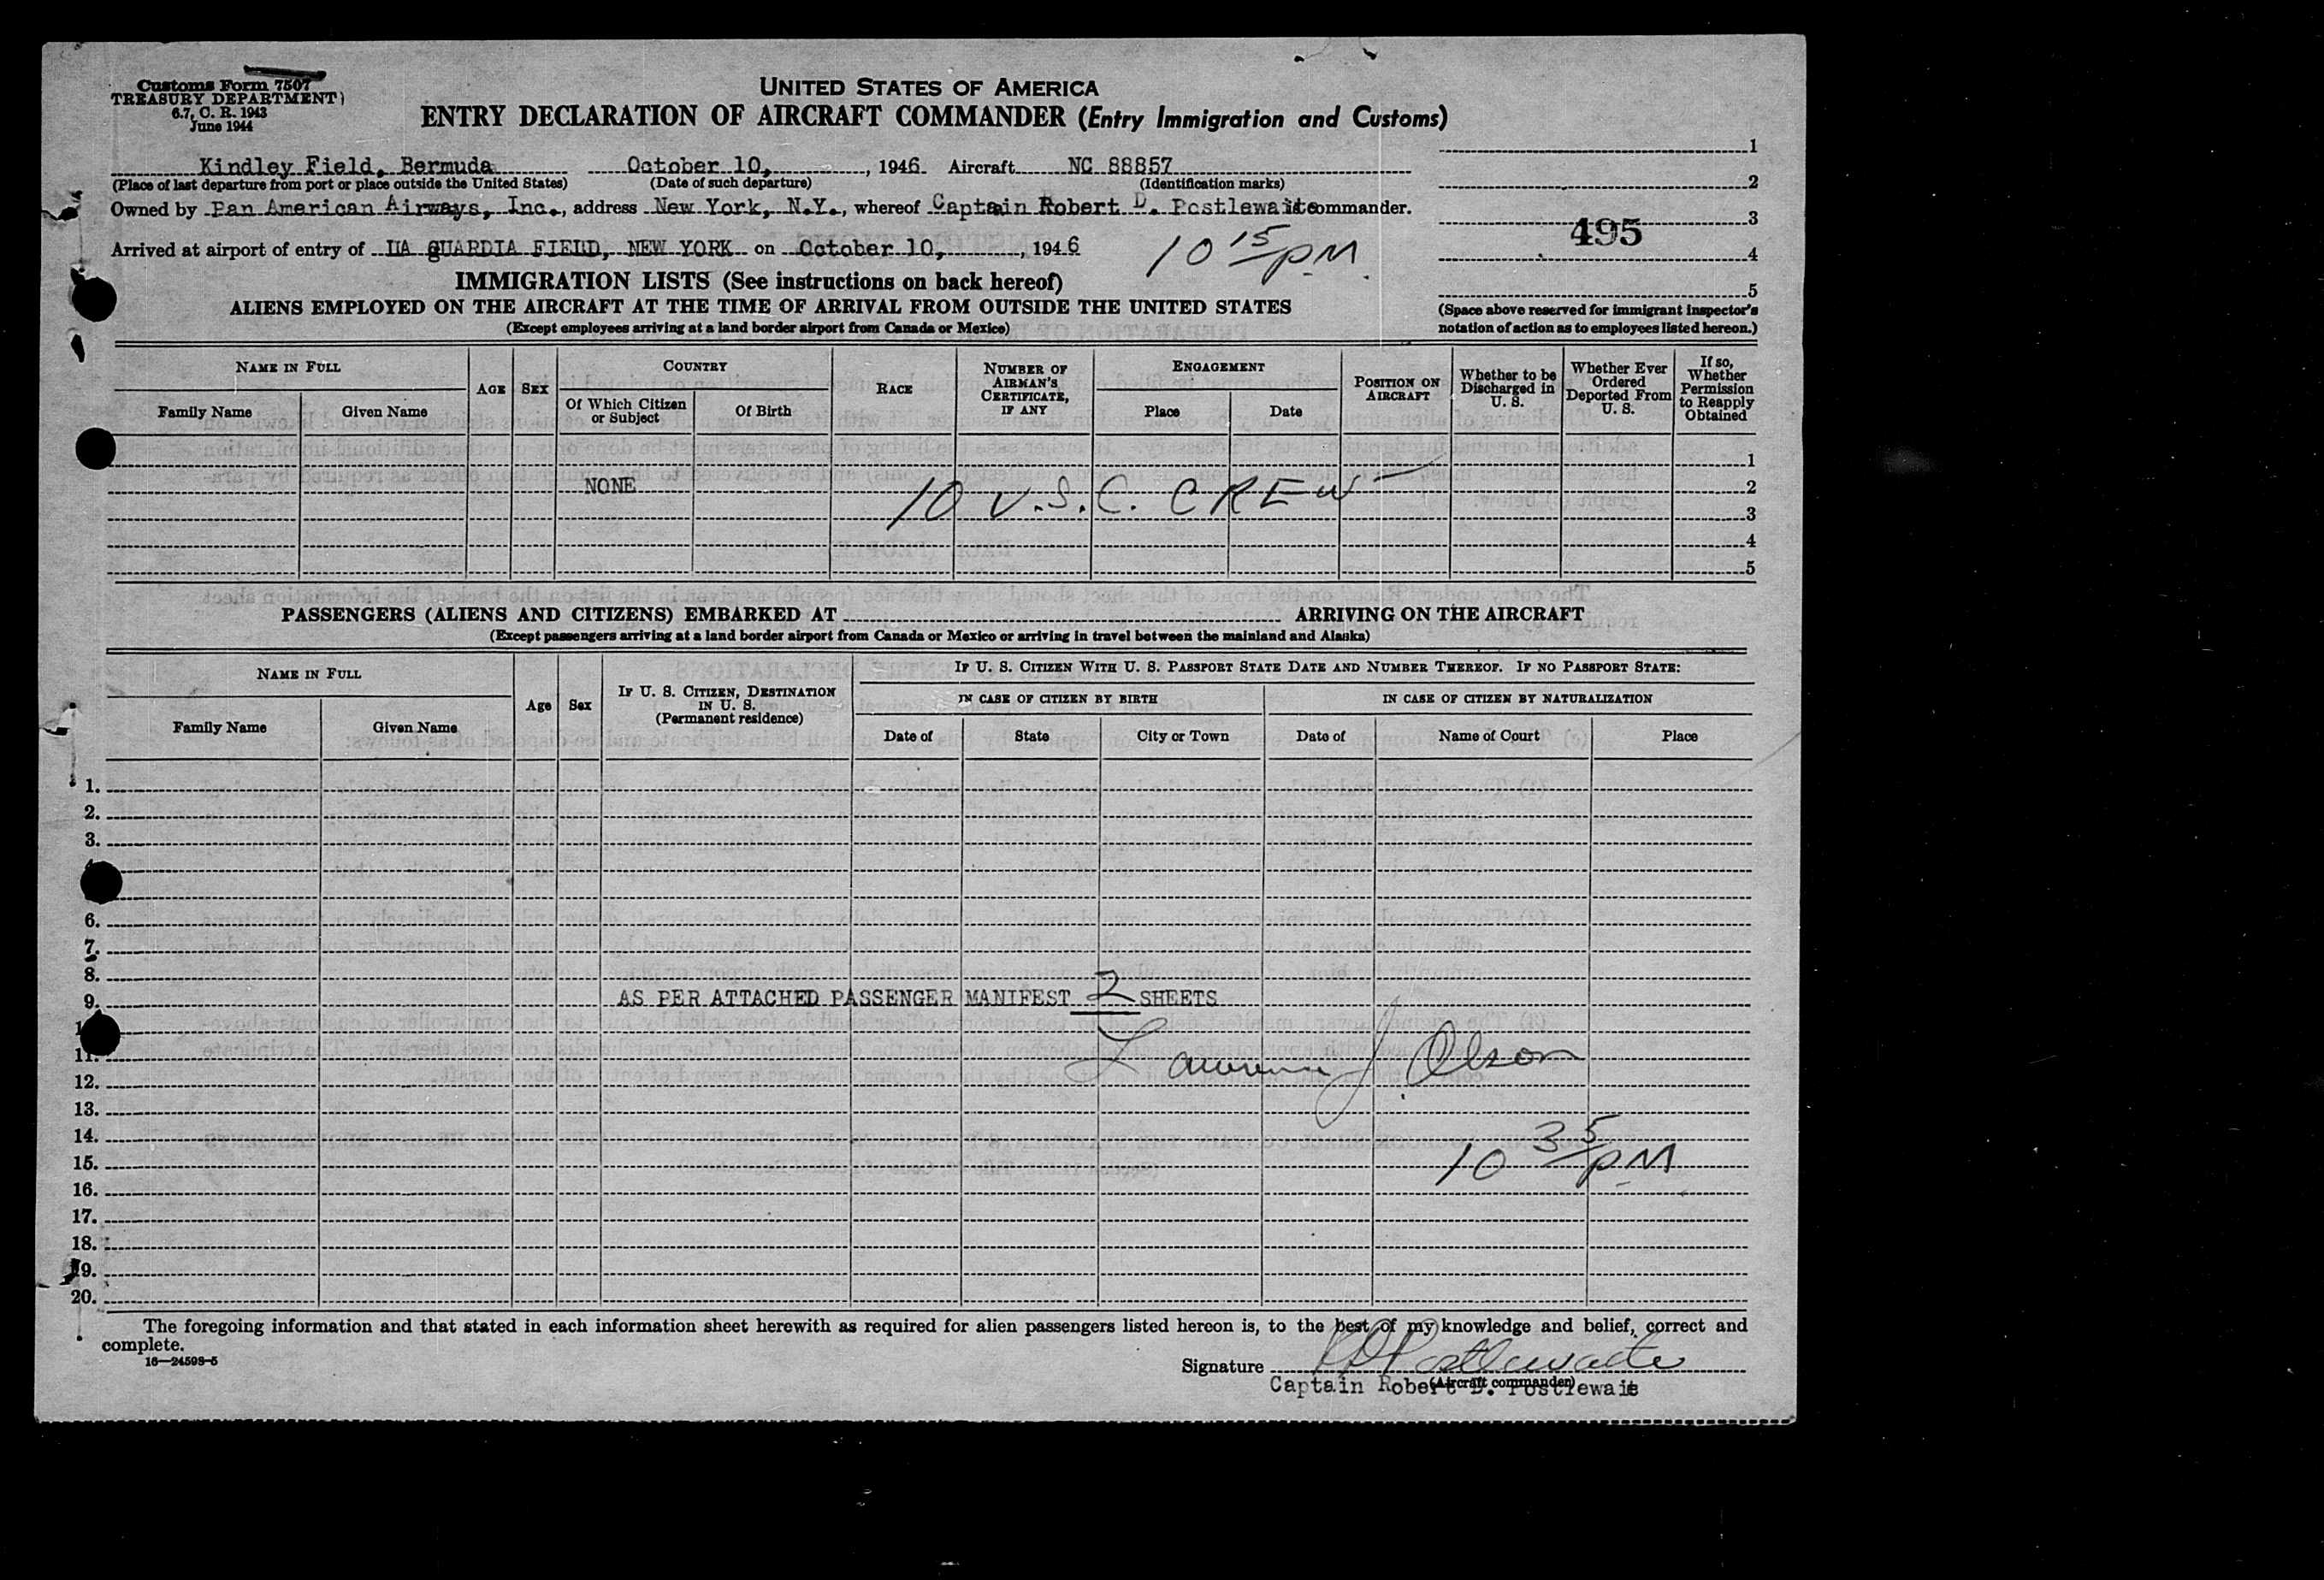 Customs Form 7507
TREASURY DEPARTMENT
6.7, C. R. 1943
June 1944
UNITED STATES OF AMERICA
ENTRY DECLARATION OF AIRCRAFT COMMANDER (Entry Immigration and Customs)
Kindley Field, Bermuda October 10, , 1946 Aircraft NC 88857
(Place of last departure from port or place outside the United States) (Date of such departure) (Identification marks)
Owned by Pan American Airways, Inc., address New York, N.Y., whereof Captain Robert D. Postlewaite is commander.
Arrived at airport of entry of LA GUARDIA FIELD, NEW YORK on October 10, , 1946
10 15 PM
1
2
3
495
4
5
(Space above reserved for immigrant inspector's
notation of action as to employees listed hereon.)
IMMIGRATION LISTS (See instructions on back hereof)
ALIENS EMPLOYED ON THE AIRCRAFT AT THE TIME OF ARRIVAL FROM OUTSIDE THE UNITED STATES
(Except employees arriving at a land border airport from Canada or Mexico)
NAME IN FULL
Family Name Given Name
AGE SEX
COUNTRY
Of Which Citizen or Subject Of Birth
RACE
NUMBER OF AIRMAN'S CERTIFICATE, IF ANY
ENGAGEMENT
Place Date
POSITION ON AIRCRAFT
Whether to be Discharged in U. S.
Whether Ever Ordered Deported From U. S.
If so, Whether Permission to Reapply Obtained
1
NONE 10 U.S.C. CREW 2
3
4
5
PASSENGERS (ALIENS AND CITIZENS) EMBARKED AT ARRIVING ON THE AIRCRAFT
(Except passengers arriving at a land border airport from Canada or Mexico or arriving in travel between the mainland and Alaska)
NAME IN FULL
Family Name Given Name
Age Sex
IF U. S. CITIZEN, DESTINATION IN U. S. (Permanent residence)
IF U. S. CITIZEN WITH U. S. PASSPORT STATE DATE AND NUMBER THEREOF. IF NO PASSPORT STATE:
IN CASE OF CITIZEN BY BIRTH IN CASE OF CITIZEN BY NATURALIZATION
Date of State City or Town Date of Name of Court Place
1.
2.
3.
6.
7.
8.
9. AS PER ATTACHED PASSENGER MANIFEST 2 SHEETS
11. Lawrence J. Olson
12.
13.
14.
15. 10 35 PM
16.
17.
18.
19.
20.
The foregoing information and that stated in each information sheet herewith as required for alien passengers listed hereon is, to the best of my knowledge and belief, correct and
complete.
16—24593-5
Signature RDPostlewaite
(Aircraft commander)
Captain Robert D. Postlewaite